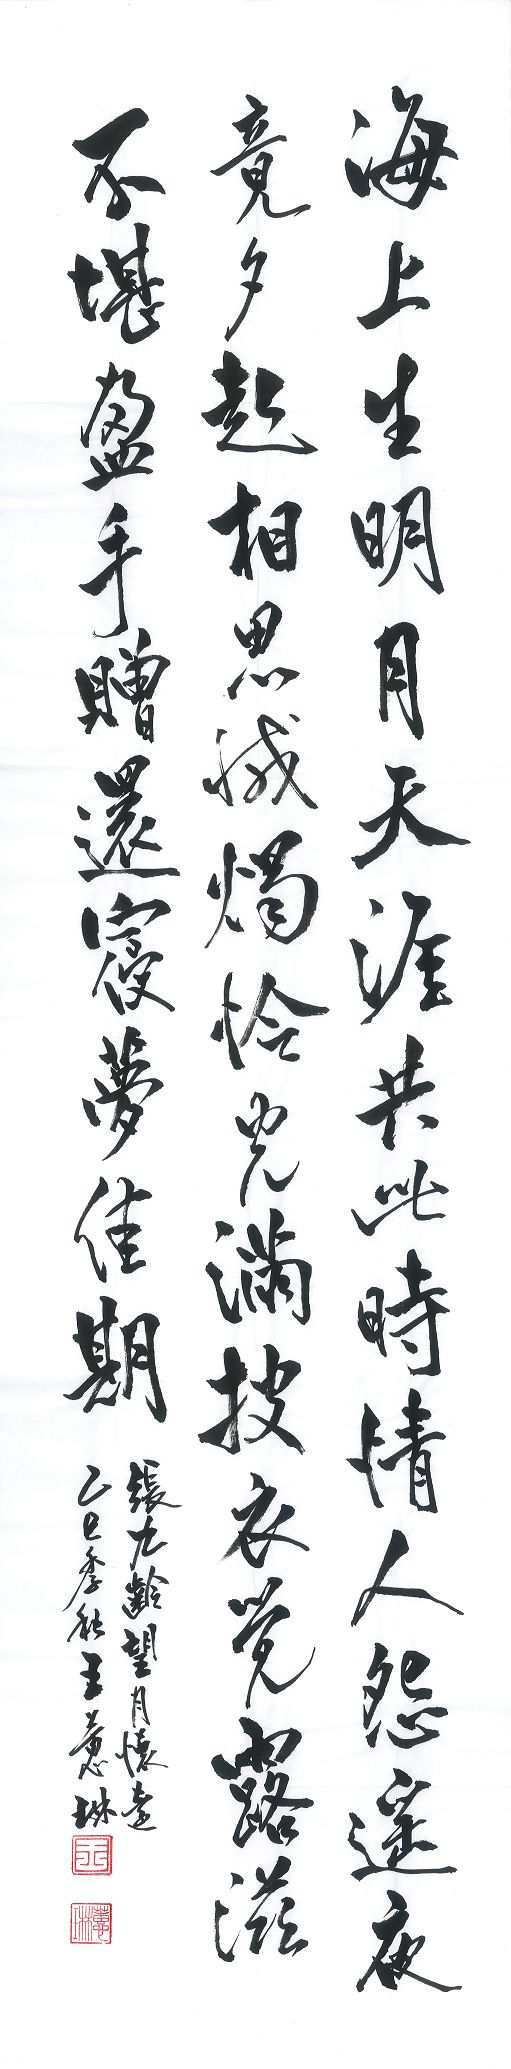 海上生明月天涯共此時情人怨遥夜
竟夕起相思滅燭怜光滿披衣覺露滋
不堪盈手贈還寢夢佳期
張九齡望月懷遠
乙巳季秋王蕙琳
王
蕙琳